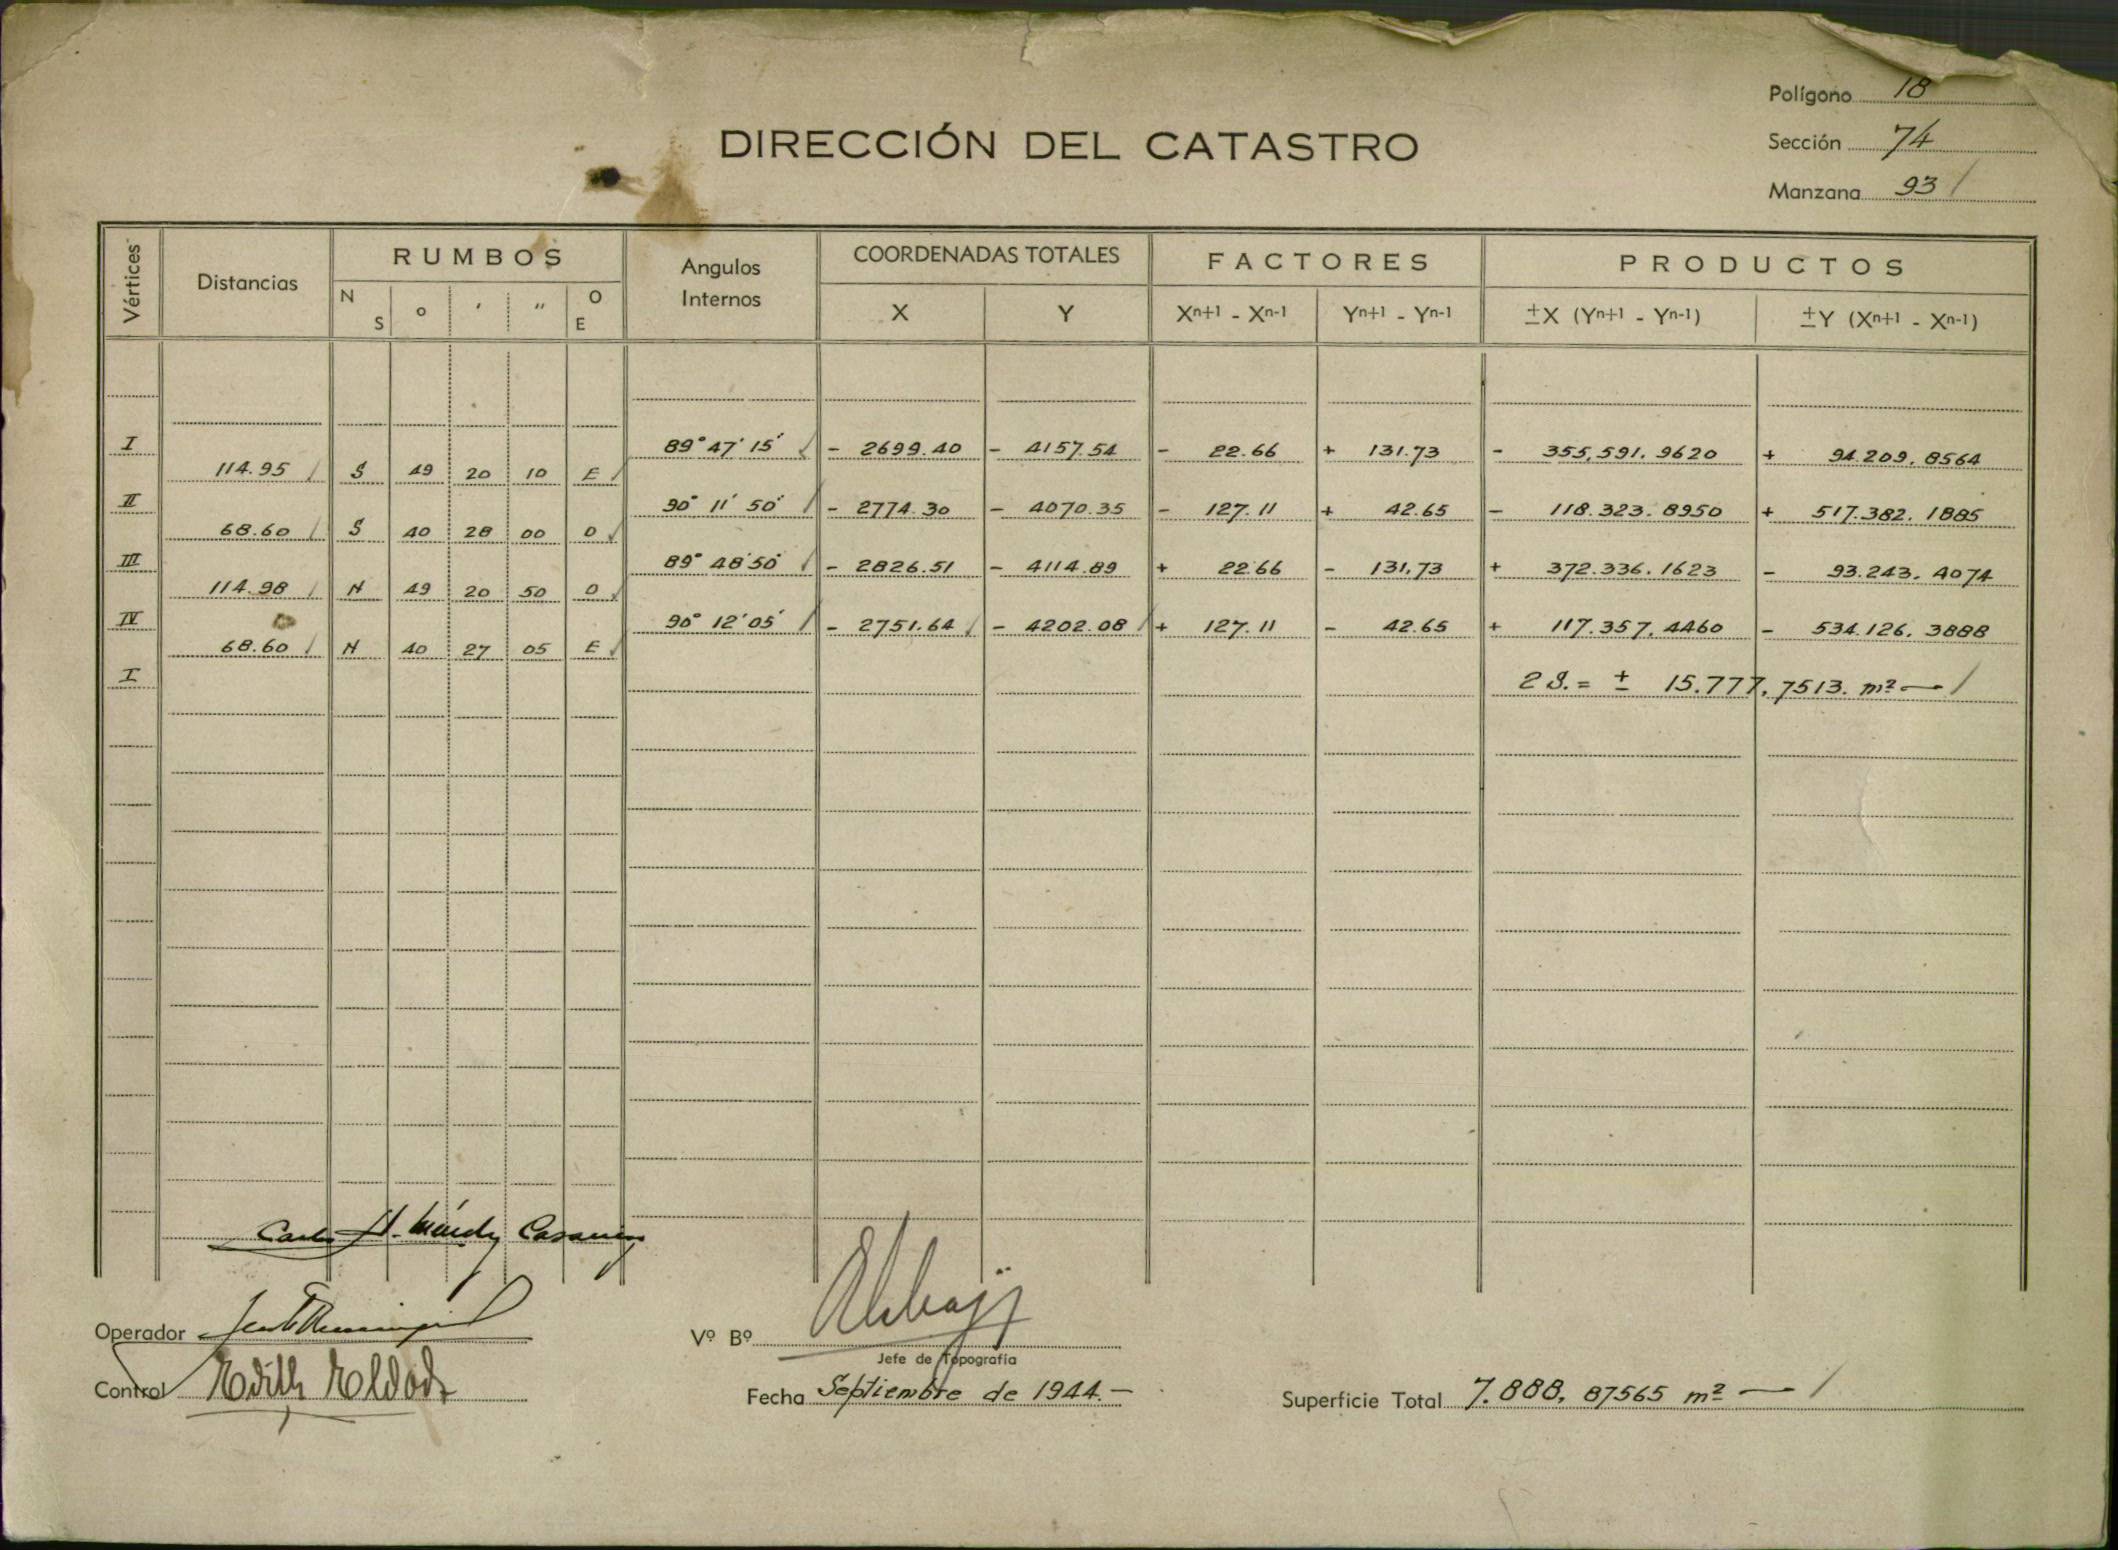 Polígono 18
DIRECCIÓN DEL CATASTRO
Sección 74
Manzana 93
Vértices Distancias RUMBOS Angulos Internos COORDENADAS TOTALES FACTORES PRODUCTOS
N S o ' " O E X Y Xn+1 - Xn-1 Yn+1 - Yn-1 ±X (Yn+1 - Yn-1) ±Y (Xn+1 - Xn-1)
I 89° 47' 15" - 2699.40 - 4157.54 - 22.66 + 131.73 - 355,591.9620 + 94.209,8564
114.95 S 49 20 10 E
II 90° 11' 50" - 2774.30 - 4070.35 - 127.11 + 42.65 - 118.323.8950 + 517.382,1885
68.60 S 40 28 00 O
III 89° 48' 50" - 2826.51 - 4114.89 + 22.66 - 131,73 + 372.336.1623 - 93.243,4074
114.98 N 49 20 50 O
IV 90° 12' 05" - 2751.64 - 4202.08 + 127.11 - 42.65 + 117.357,4460 - 534.126,3888
68.60 N 40 27 05 E
I 2 S. = ± 15.777,7513. m²
Operador
Vº Bº
Jefe de Topografía
Control Edith
Fecha Septiembre de 1944.-
Superficie Total 7.888,87565 m²